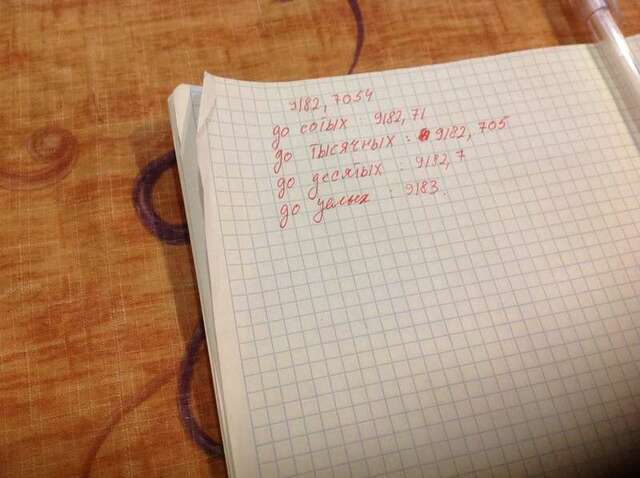 9182,7054
до сотых 9182,71
до тысячных : 9182,705
до десятых : 9182,7
до целых : 9183.